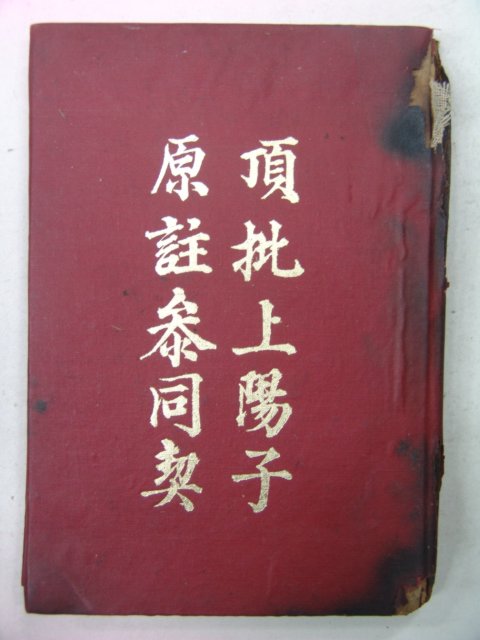 頂批上陽子
原註参同契